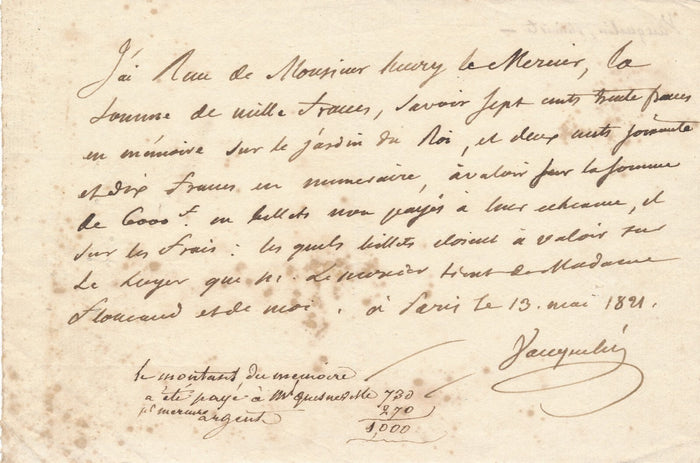 J'ai Reçu de Monsieur henry le Mercier, la
somme de mille francs, savoir sept cents trente francs
en mémoire sur le jardin du Roi, et deux cents soixante
et dix francs en numeraire, à valoir sur la somme
de 6000 f. en billets non payés à leur echeance, et
sur les frais : les quels billets etoient à valoir sur
le loyer que M. Lemercier tient de Madame
et de moi. à Paris le 13. mai 1821.
Vauquelin
le montant du mémoire
a été payé à Mr quesneville 730
270
argent
1,000